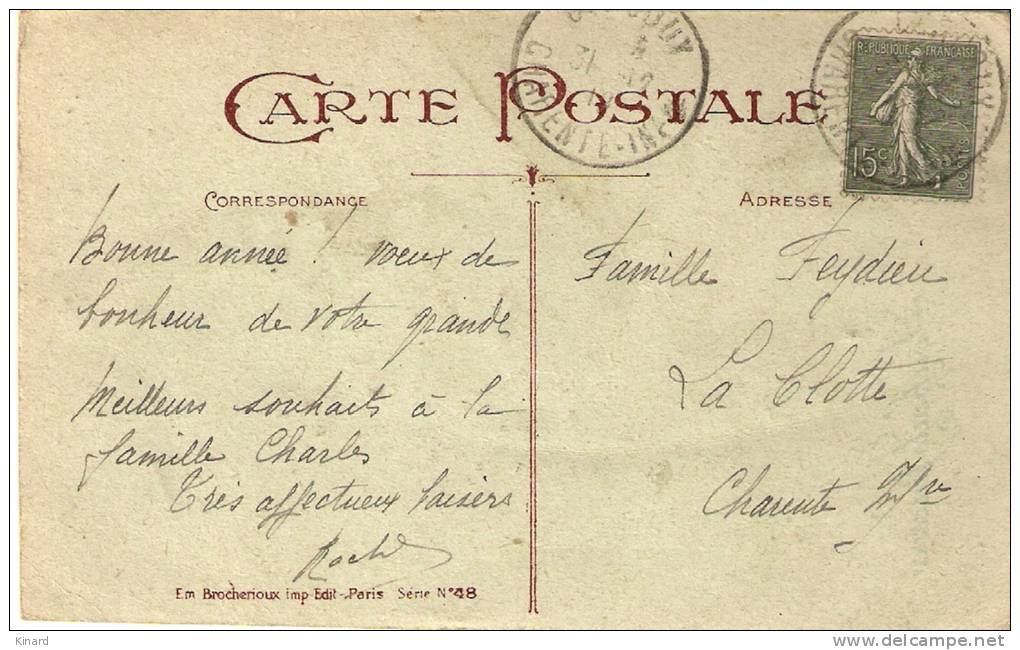 CARTE POSTALE
31 12
CHARENTE-INF
RÉPUBLIQUE FRANÇAISE
15c
POSTES
CORRESPONDANCE
Bonne année ! voeux de
bonheur de votre grande
Meilleurs souhaits à la
famille Charles
Très affectueux baisers
ADRESSE
Famille Feydieu
La Clotte
Charente Infre
Em Brocherioux Imp-Edit-Paris Série N°48
Kinard
delcampe.net